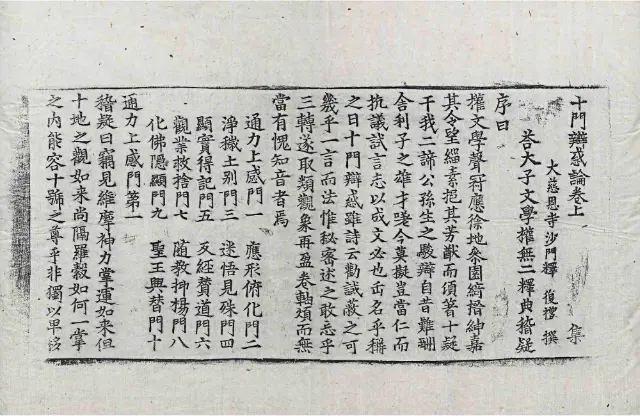 十門辯惑論卷上 集
大慈恩寺沙門釋 復禮 撰
荅太子文學權無二釋典稽疑
序曰
權文學聲符應徐地參園綺搢紳嘉
其令望緇素挹其芳猷而頃著十疑
干我二諦公孫生之駿辯自昔難酬
舍利子之雄才嗟今莫擬豈當仁而
抗議試言志以成文必也正名乎稱
之曰十門辯惑雖詩云勸誡蔽之可
幾乎一言而法惟秘密述之敢忘乎
三轉遂取類觀象再盈卷軸頗而無
當有愧知音者焉
通力上感門一 應形俯化門二
淨穢土別門三 迷悟見殊門四
顯實得記門五 反經贊道門六
觀業救捨門七 隨教抑揚門八
化佛隱顯門九 聖王興替門十
通力上感門第一
稽疑曰竊見維摩神力掌運如來但
十地之觀如來尚隔羅縠如何一掌
之內能容十號之尊乎非獨以卑移